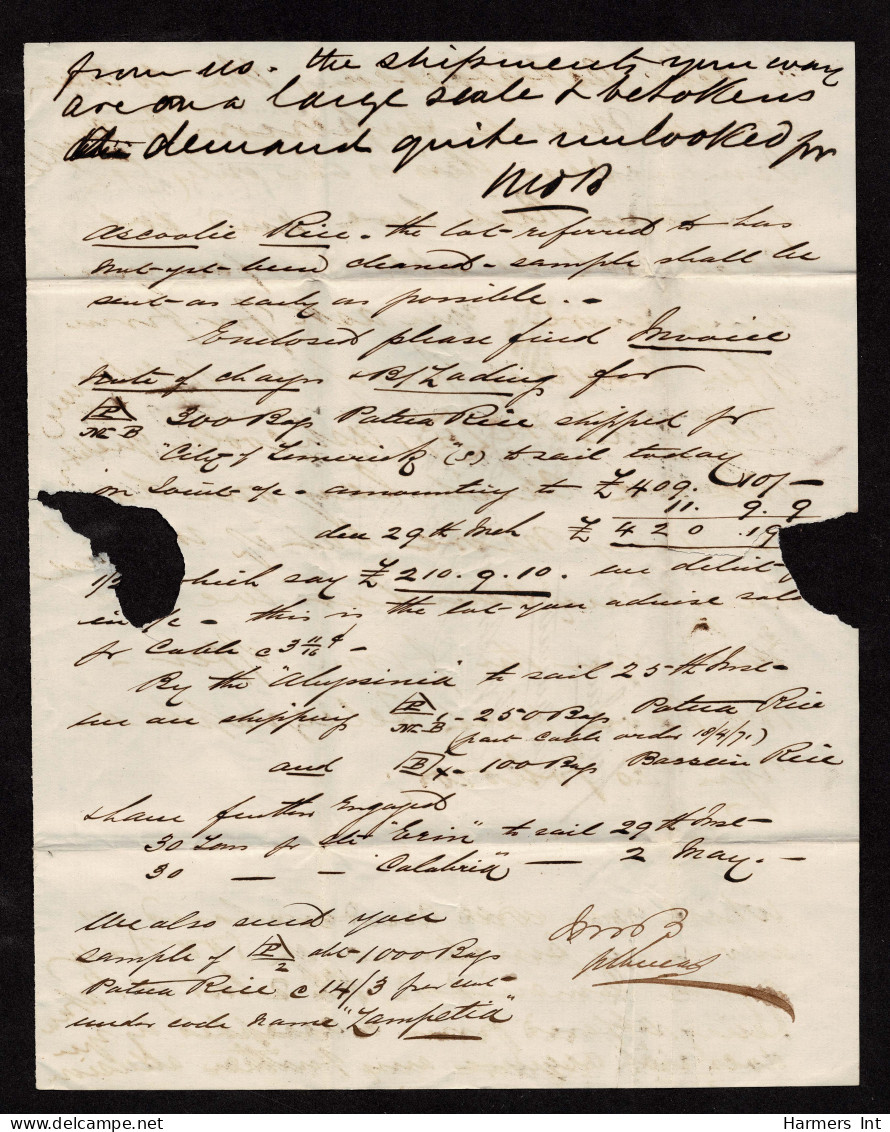 from us. the shipments your way
are on a large scale & betokens
demand quite unlooked for
Ascoolie Rice. the lot referred to has
not yet been cleaned - sample shall be
sent as early as possible. -
Enclosed please find Invoice
note of charges & B/Lading for
P
N B 300 Bags Patna Rice shipped for
"City of Limerick" (S) to sail today
on Joint a/c - amounting to £409. 10/-
11. 9. 9
due 29th Inst £ 420 .19
which say £210. 9. 10. we debit
in a/c - this is the lot you advise sold
for Cable @ 3 11/16 ¢ -
By the "Abyssinia" to sail 25th Inst -
we are shipping P N B - 250 Bags Patna Rice
(part Cable order 18/4/71)
and B x - 100 Bags Bassein Rice
& have further Engaged
30 Tons pr Str "Erin" to sail 29th Inst -
30 — — "Calabria" — 2 May. -
We also send you
sample of P 2 abt 1000 Bags
Patna Rice @ 14/3 per cwt
under code name "Zampetia"
Harmers Int